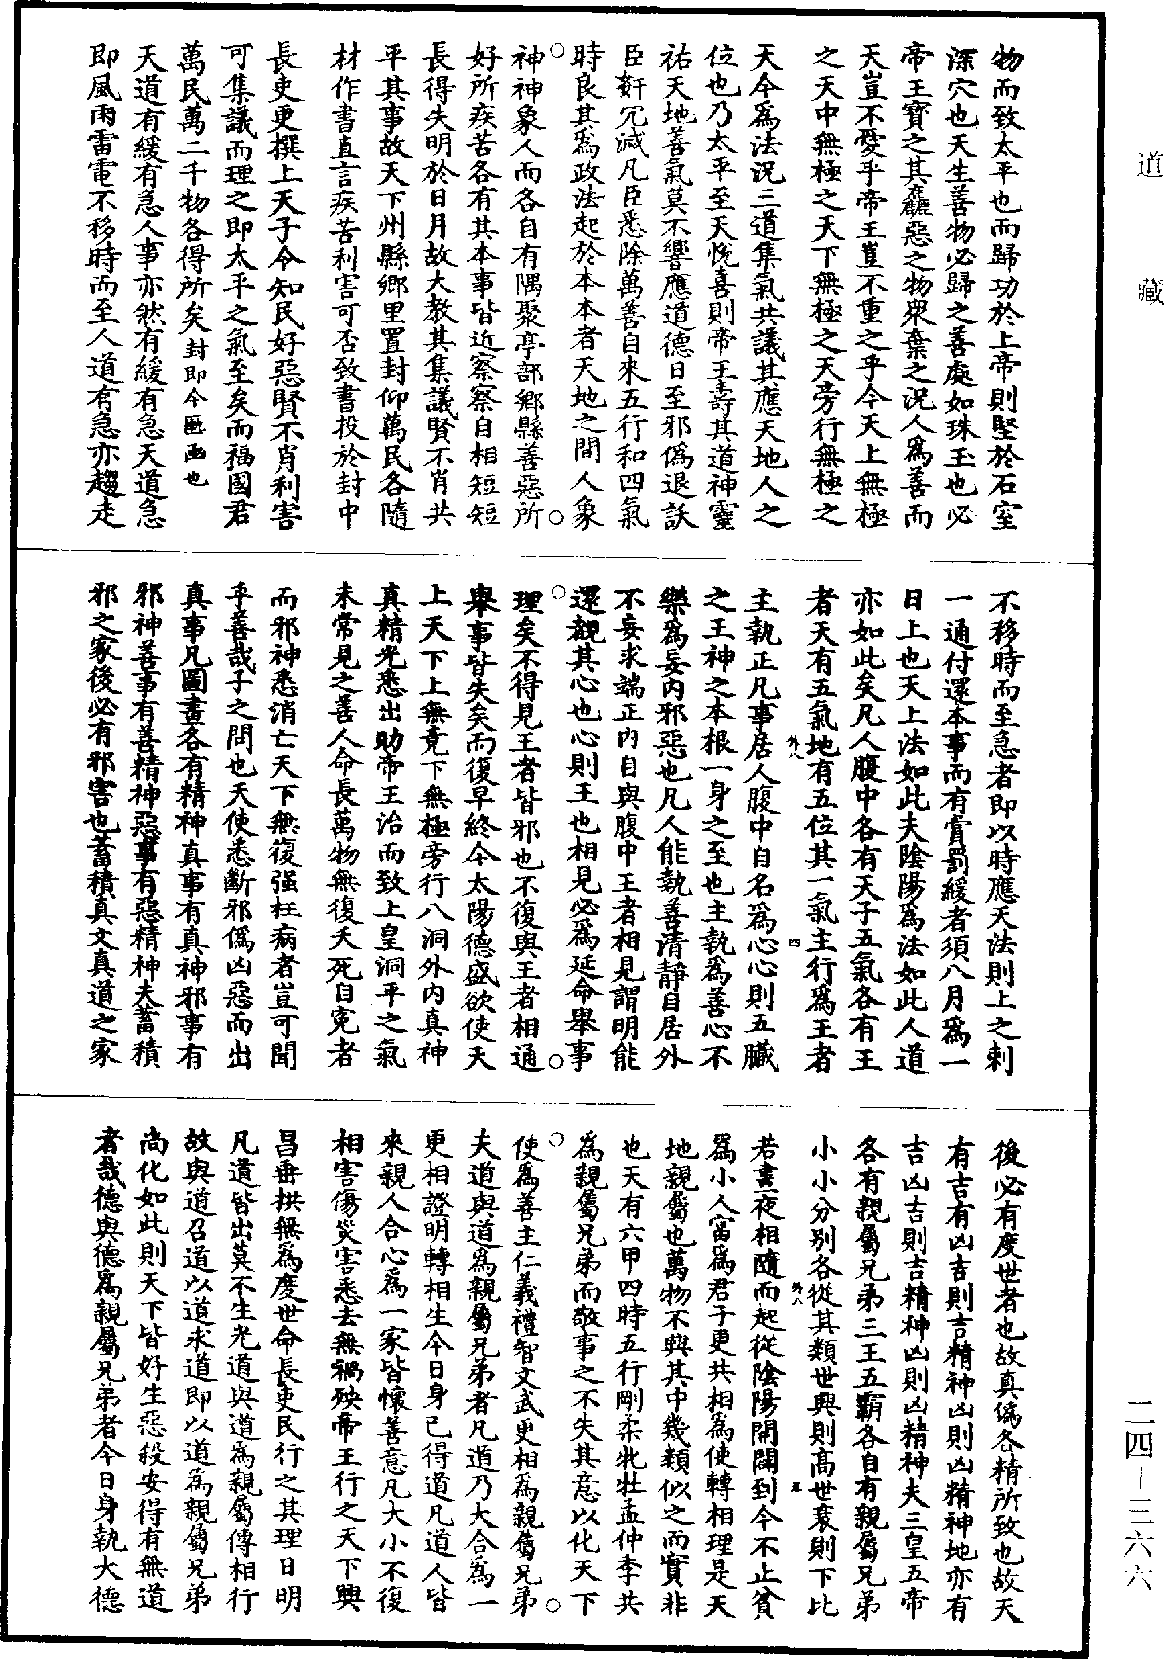 物而致太平也而歸功於上帝則堅於石室
深穴也天生善物必歸之善處如珠玉也必
帝王寶之其麤惡之物衆棄之况人爲善而
天豈不愛乎帝王豈不重之乎今天上無極
之天中無極之天下無極之天旁行無極之
天今爲法況三道集氣共議其應天地人之
位也乃太平至天悅喜則帝王壽其道神靈
祐天地善氣莫不響應道德日至邪僞退訞
臣姧冗滅凡臣悉除萬善自來五行和四氣
時良其爲政法起於本本者天地之間人象
神神象人而各自有隅聚亭部鄉縣善惡所
好所疾苦各有其本事皆近察察自相短短
長得失明於日月故大教其集議賢不肖共
平其事故天下州縣鄉里置封仰萬民各隨
材作書直言疾苦利害可否致書投於封中
長吏更撰上天子令知民好惡賢不肖利害
可集議而理之即太平之氣至矣而福國君
萬民萬二千物各得所矣封即今匭函也
天道有緩有急人事亦然有緩有急天道急
即風雨雷電不移時而至人道有急亦趨走
不移時而至急者即以時應天法則上之刺
一通付還本事而有賞罰緩者須八月爲一
日上也天上法如此夫陰陽爲法如此人道
亦如此矣凡人腹中各有天子五氣各有王
者天有五氣地有五位其一氣主行爲王者
外八 四
主執正凡事居人腹中自名爲心心則五臟
之王神之本根一身之至也主執爲善心不
樂爲妄內邪惡也凡人能執善清靜自居外
不妄求端正內自與腹中王者相見謂明能
還觀其心也心則王也相見必爲延命舉事
理矣不得見王者皆邪也不復與王者相通
舉事皆失矣而復早終今太陽德盛欲使天
上天下上無竟下無極旁行八洞外內真神
真精光悉出助帝王治而致上皇洞平之氣
未常見之善人命長萬物無復夭死自冤者
而邪神悉消亡天下無復强枉病者豈可聞
乎善哉子之問也天使悉斷邪僞凶惡而出
真事凡圖畫各有精神真事有真神邪事有
邪神善事有善精神惡事有惡精神夫蓄積
邪之家後必有邪害也蓄積真文真道之家
後必有度世者也故真僞各精所致也故天
有吉有凶吉則吉精神凶則凶精神地亦有
吉凶吉則吉精神凶則凶精神夫三皇五帝
各有親屬兄弟三王五霸各自有親屬兄弟
小小分別各從其類世興則高世衰則下比
外八 五
若晝夜相隨而起從陰陽開闢到今不止貧
爲小人富爲君子更共相爲使轉相理是天
地親屬也萬物不興其中幾類似之而實非
也天有六甲四時五行剛柔牝牡孟仲季共
爲親屬兄弟而敬事之不失其意以化天下
使爲善主仁義禮智文武更相爲親屬兄弟
夫道與道爲親屬兄弟者凡道乃大合爲一
更相證明轉相生今日身已得道凡道人皆
來親人合心爲一家皆懷善意凡大小不復
相害傷災害悉去無禍殃帝王行之天下興
昌垂拱無爲度世命長吏民行之其理日明
凡道皆出莫不生光道與道爲親屬傳相行
故與道召道以道求道即以道爲親屬兄弟
尚化如此則天下皆好生惡殺安得有無道
者哉德與德爲親屬兄弟者今日身執大德
道藏
二四—三六六